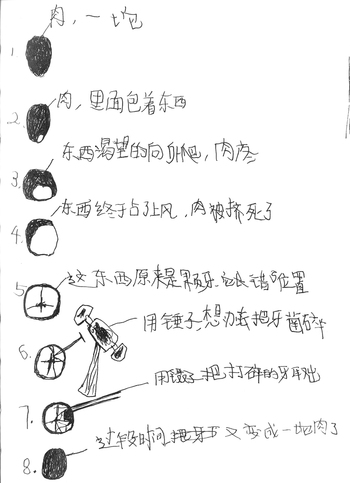 肉，一块
1.
肉，里面包着东西
2.
东西渴望的向外爬，肉疼
3.
东西终于占了上风，肉被挤死了
4.
这东西原来是颗牙 长错位置
5
用锤子 想办法把牙齿碎
6.
用镊子把打碎的牙取出
7.
过段时间 又变成一块肉了
8.